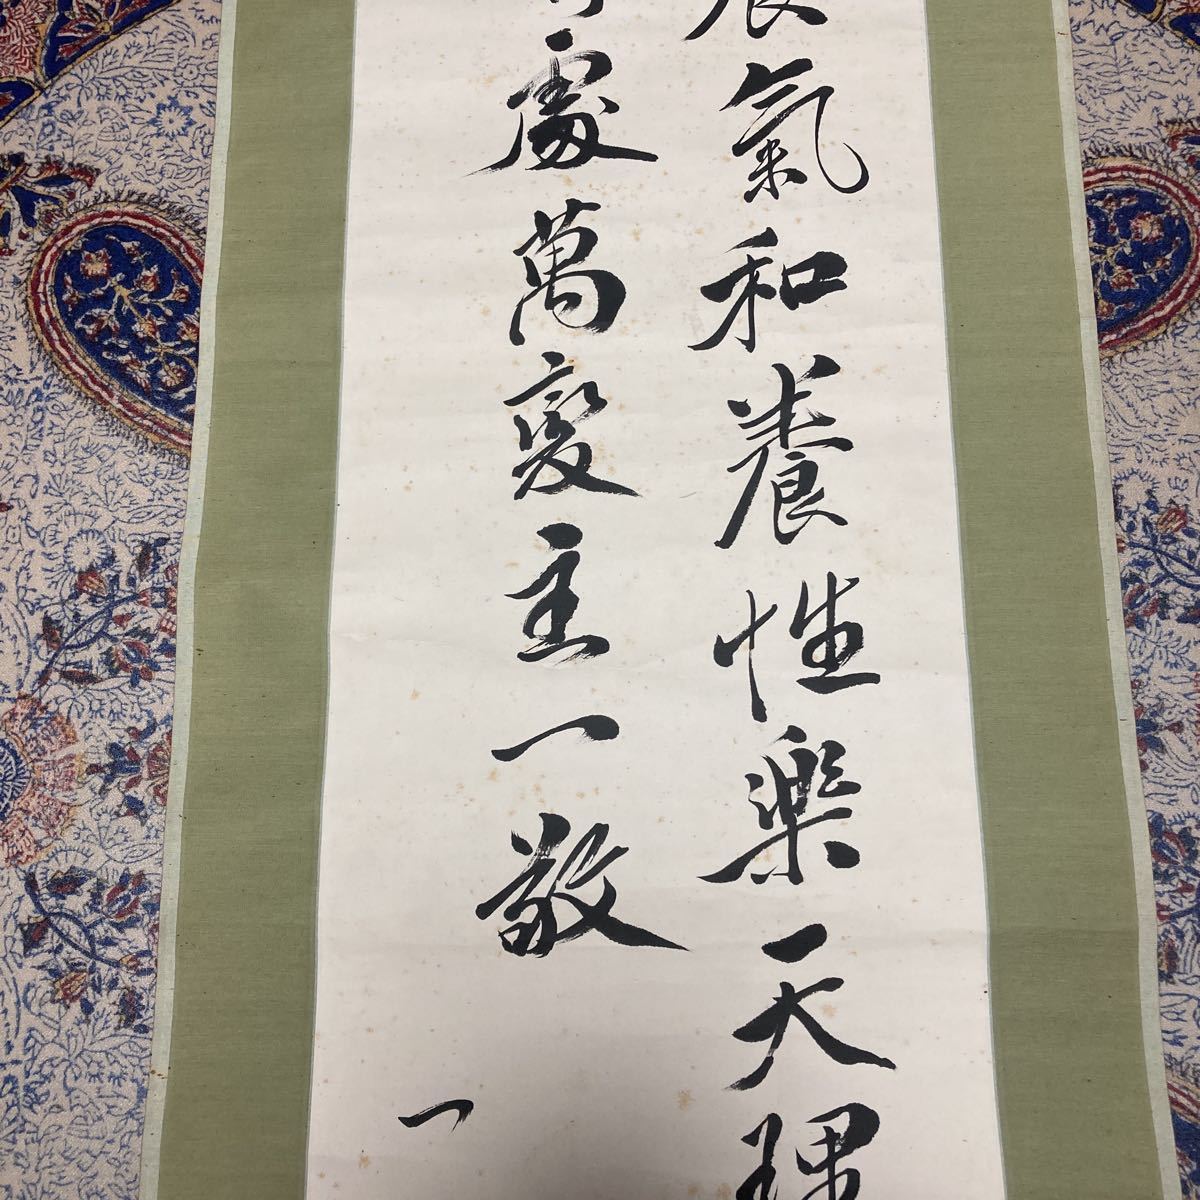 氣和養性樂天理
處萬變主一敬
一